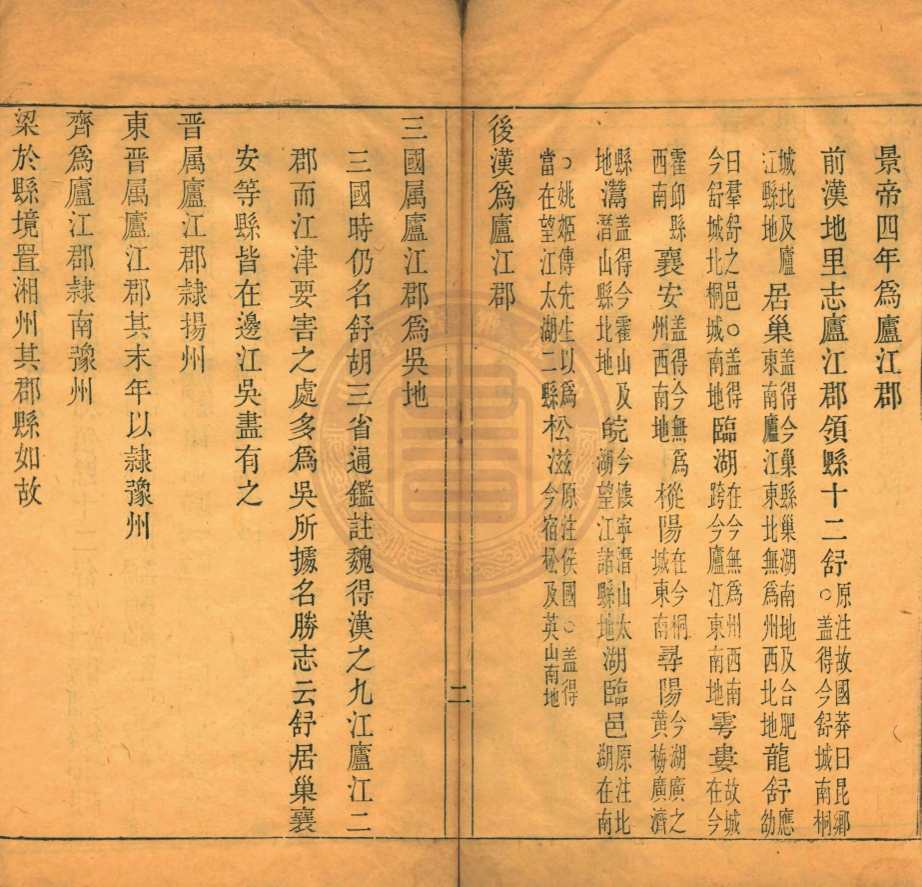 景帝四年為廬江郡
前漢地里志廬江郡領縣十二舒原注故國莽曰昆鄉○盖得今舒城南桐
城北及廬江縣地居巢盖得今巢縣巢湖南地及合肥東南廬江東北無為州西北地龍舒應劭
曰羣舒之邑○盖得今舒城北桐城南地臨湖在今無為州西南跨今廬江東南地雩婁故城在今
霍邱縣西南襄安盖得今無為州西南地樅陽在今桐城東南尋陽今湖廣之黃梅廣濟
縣地灊盖得今霍山及潛山縣北地皖今懷寧潛山太湖望江諸縣地湖臨邑原注北湖在南
○姚姬傳先生以為當在望江太湖二縣松滋原注侯國○盖得今宿松及英山南地
後漢為廬江郡
二
三國属廬江郡為吳地
三國時仍名舒胡三省通鑑註魏得漢之九江廬江二
郡而江津要害之處多為吳所據名勝志云舒居巢襄
安等縣皆在邊江吳盡有之
晋属廬江郡隷揚州
東晋属廬江郡其末年以隷豫州
齊為廬江郡隷南豫州
梁於縣境置湘州其郡縣如故